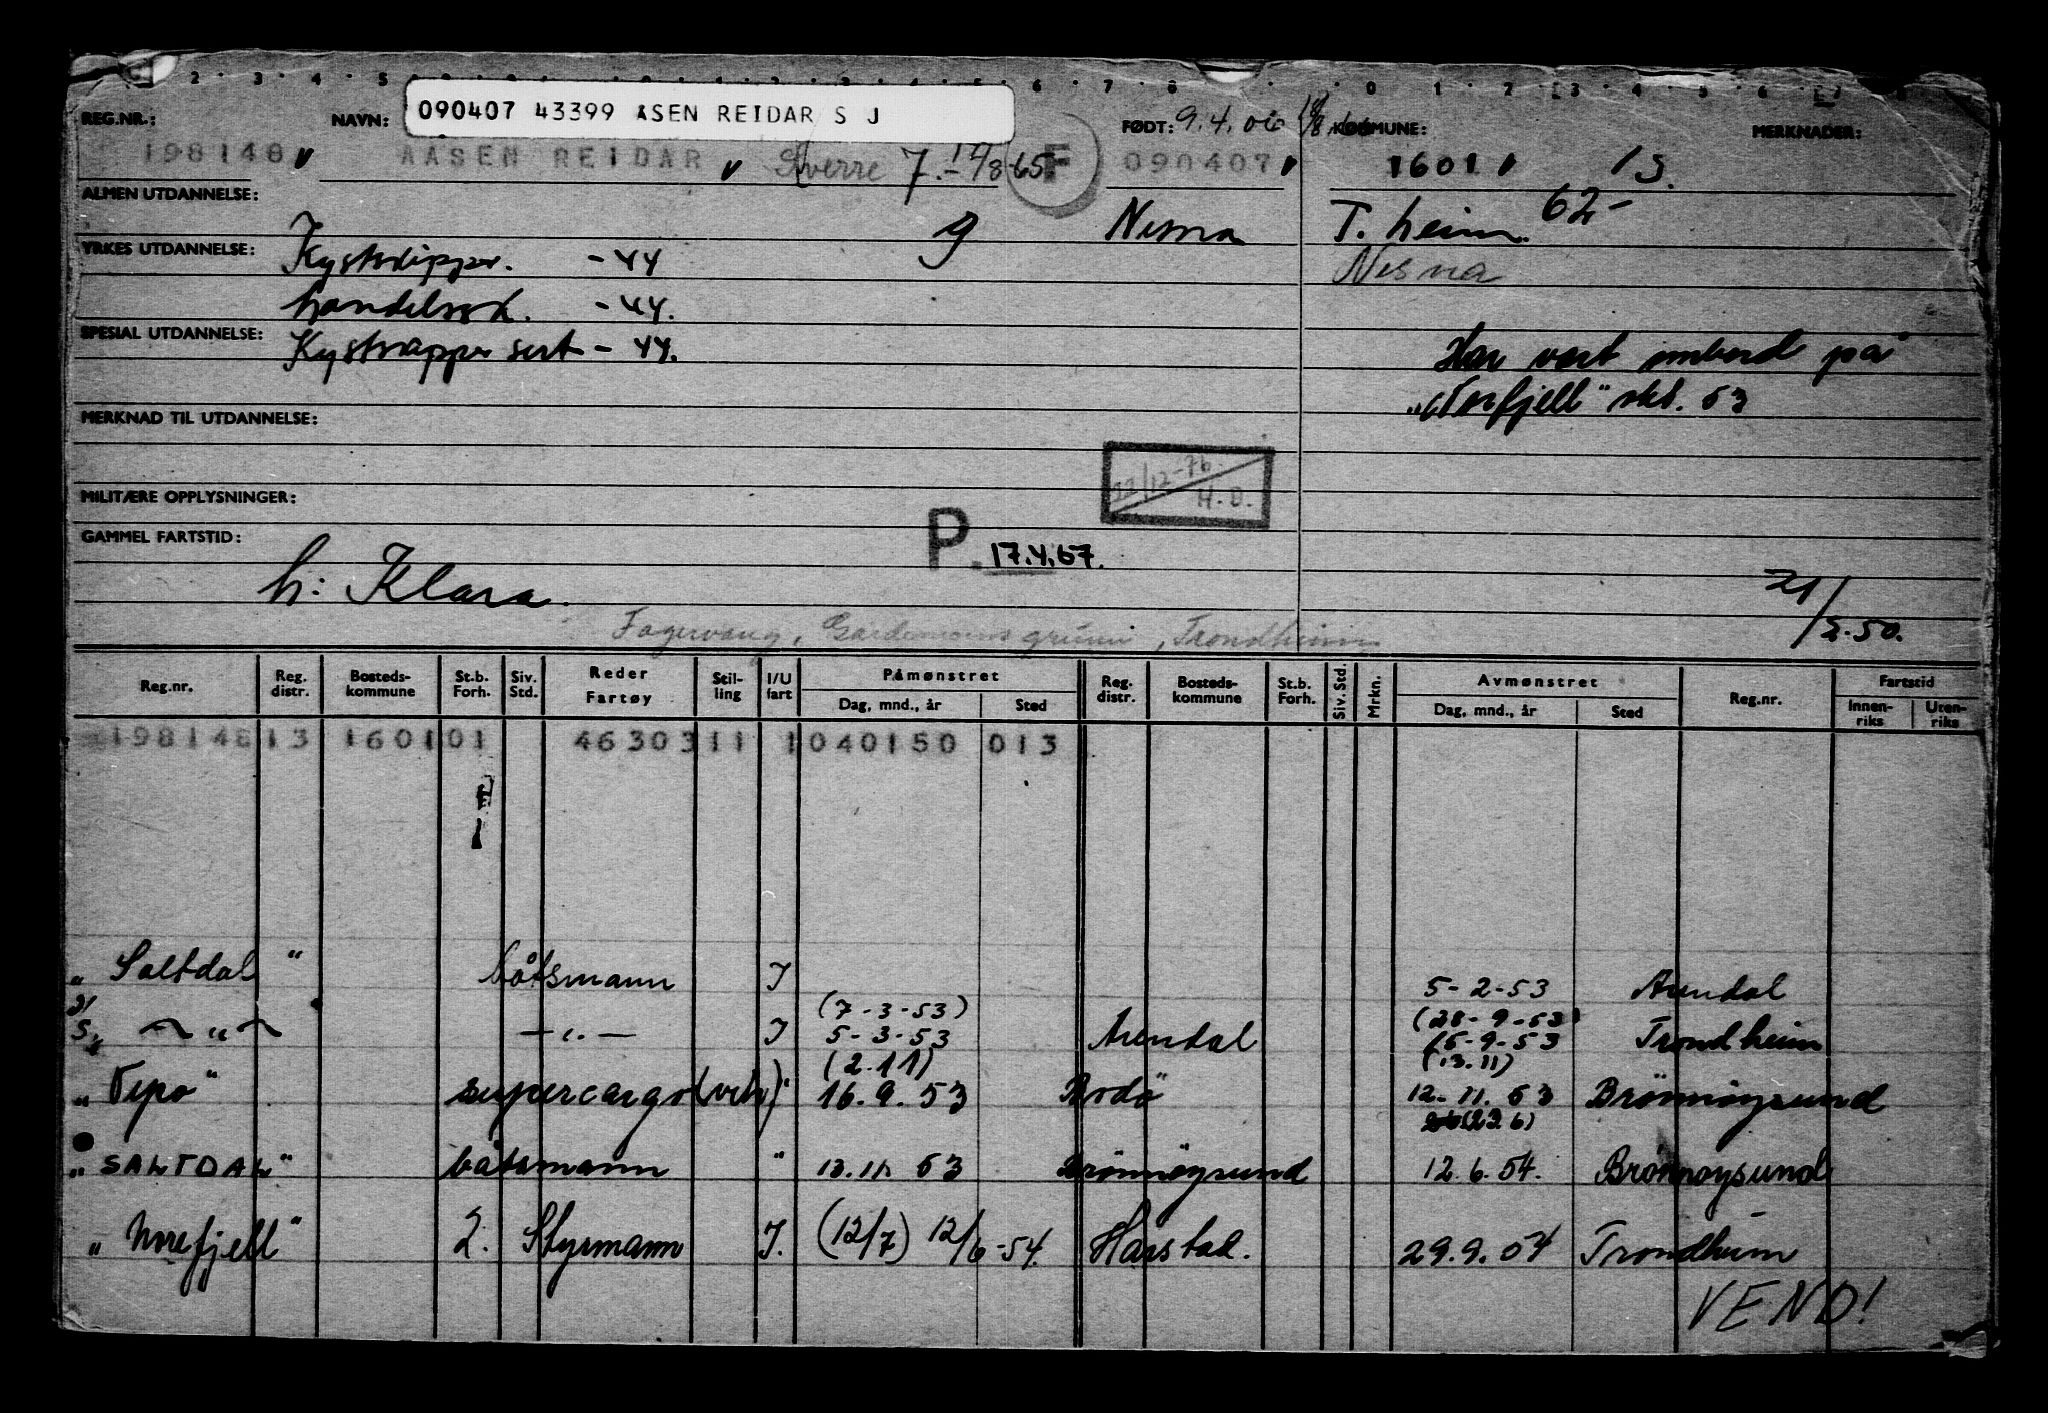 090407 43399 ÅSEN REIDAR S J
REG.NR.: NAVN: FØDT: 9.4.06 KOMMUNE: MERKNADER:
198148 AASEN REIDAR Sverre 7. F 090407 1601 13.
ALMEN UTDANNELSE: g Nesna T. heim. 62-
YRKES UTDANNELSE: Kystskipper. -44 Nesna
handelssk. -44.
SPESIAL UTDANNELSE: Kystskipper sert -44. Har vært ombord på
"Norefjell" okt. 53
MERKNAD TIL UTDANNELSE:
22/12-76
H.O.
MILITÆRE OPPLYSNINGER:
GAMMEL FARTSTID: P. 17.4.67.
h: Klara. 21/2-50.
Fagervang, Trondheim
Reg.nr. Reg. distr. Bosteds-kommune St.b. Forh. Siv. Std. Reder Fartøy Stil-ling I/U fart Påmønstret Dag, mnd., år Sted Reg. distr. Bosteds-kommune St.b. Forh. Siv. Std. Mrkn. Avmønstret Dag, mnd., år Sted Reg.nr. Fartstid Innen-riks Uten-riks
198148 13 1601 01 46303 11 1 040150 013
"Saltdal" båtsmann I 5-2-53 Arendal
(7-3-53) (28-9-53)
— " — — " — I 5-3-53 Arendal 15-9-53 Trondheim
(2.11) (13.11)
"Vepo" supercargo " 16.9.53 Bodö 12.11.53 Brönnöysund
(23.6)
"SALTDAL" båtsmann " 13.11.53 Brönnöysund 12.6.54. Brönnöysund
"Norefjell" 2. Styrmann I. (12/7) 12/6-54. Harstad. 29.9.54 Trondheim
VEND!